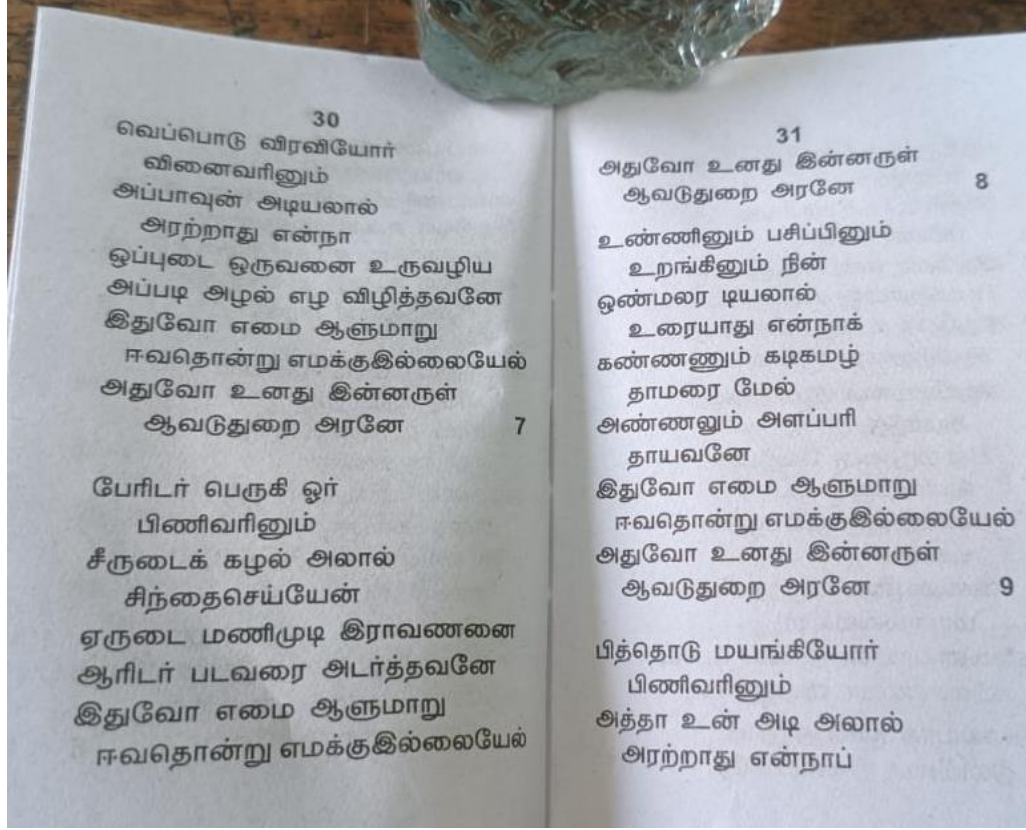 30
வெப்பொடு விரவியோர்
வினைவரினும்
அப்பாவுன் அடியலால்
அரற்றாது என்நா
ஒப்புடை ஒருவனை உருவழிய
அப்படி அழல் எழ விழித்தவனே
இதுவோ எமை ஆளுமாறு
ஈவதொன்று எமக்குஇல்லையேல்
அதுவோ உனது இன்னருள்
ஆவடுதுறை அரனே 7
பேரிடர் பெருகி ஓர்
பிணிவரினும்
சீருடைக் கழல் அலால்
சிந்தைசெய்யேன்
ஏருடை மணிமுடி இராவணனை
ஆரிடர் படவரை அடர்த்தவனே
இதுவோ எமை ஆளுமாறு
ஈவதொன்று எமக்குஇல்லையேல்
31
அதுவோ உனது இன்னருள்
ஆவடுதுறை அரனே 8
உண்ணினும் பசிப்பினும்
உறங்கினும் நின்
ஒண்மலர டியலால்
உரையாது என்நாக்
கண்ணணும் கடிகமழ்
தாமரை மேல்
அண்ணலும் அளப்பரி
தாயவனே
இதுவோ எமை ஆளுமாறு
ஈவதொன்று எமக்குஇல்லையேல்
அதுவோ உனது இன்னருள்
ஆவடுதுறை அரனே 9
பித்தொடு மயங்கியோர்
பிணிவரினும்
அத்தா உன் அடி அலால்
அரற்றாது என்நாப்